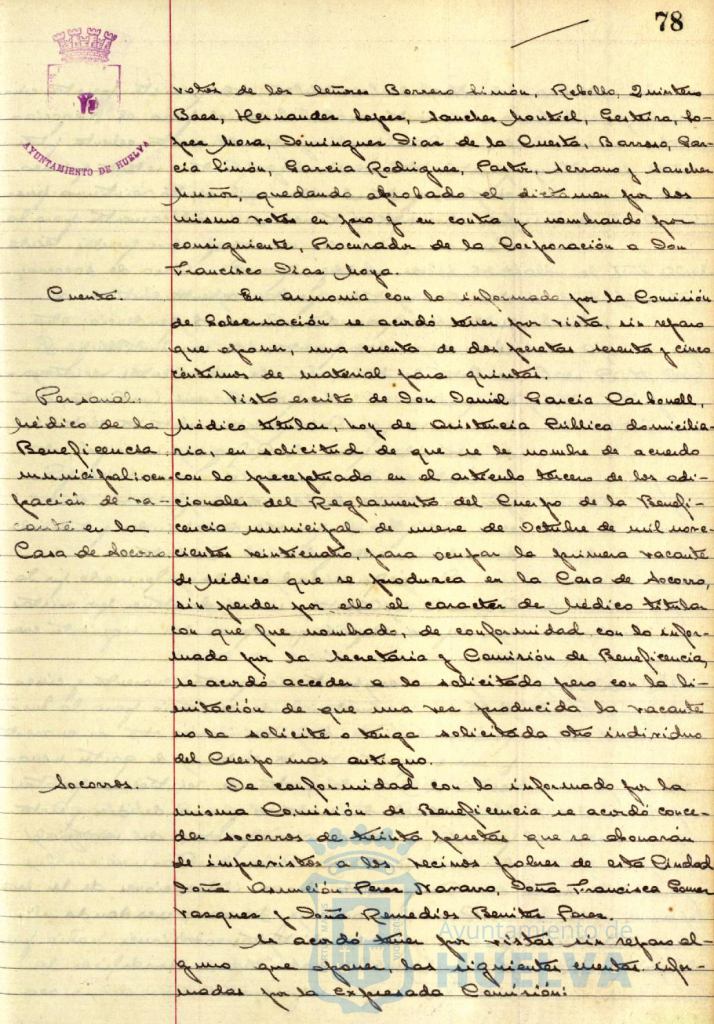 78
AYUNTAMIENTO DE HUELVA
votos de los señores Borrero Limón, Rebollo, Quintero
Baez, Hernandez Lopez, Sanchez Montiel, Gestera, Lo-
pez Mora, Dominguez Diaz de la Cuesta, Barroso, Gar-
cia Limón, Garcia Rodriguez, Pastor, Serrano y Sanchez
Muñoz, quedando aprobado el dictamen por los
mismo votos en pro y en contra y nombrando por
consiguiente, Procurador de la Corporación a Don
Francisco Diaz Moya.
Cuenta.
En armonia con lo informado por la Comisión
de Gobernación se acordó tener por vista, sin reparo
que oponer, una cuenta de dos pesetas sesenta y cinco
céntimos de material para quintas.
Personal:
Médico de la
Beneficencia
municipal: ocu-
pación de va-
cante en la
Casa de Socorro
Visto escrito de Don Daniel Garcia Carbonell,
Médico titular, hoy de Asistencia Pública domicilia-
ria, en solicitud de que se le nombre de acuerdo
con lo preceptuado en el artículo tercero de los adi-
cionales del Reglamento del Cuerpo de la Benefi-
cencia municipal de nueve de Octubre de mil nove-
cientos veinticuatro, para ocupar la primera vacante
de Médico que se produzca en la Casa de Socorro,
sin perder por ello el caracter de Médico titular
con que fue nombrado, de conformidad con lo infor-
mado por la Secretaria y Comisión de Beneficencia,
se acordó acceder a lo solicitado pero con la li-
mitación de que una vez producida la vacante
no la solicite o tenga solicitada otro individuo
del Cuerpo mas antiguo.
Socorros.
De conformidad con lo informado por la
misma Comisión de Beneficencia se acordó conce-
der socorros de treinta pesetas que se abonarán
de imprevistos a los vecinos pobres de esta Ciudad
Doña Asunción Perez Navarro, Doña Francisca Gomez
Vazquez y Doña Remedios Benitez Perez.
Se acordó tener por vistas sin reparo al-
guno que oponer, las siguientes cuentas infor-
madas por la expresada Comisión:
Ayuntamiento de
HUELVA